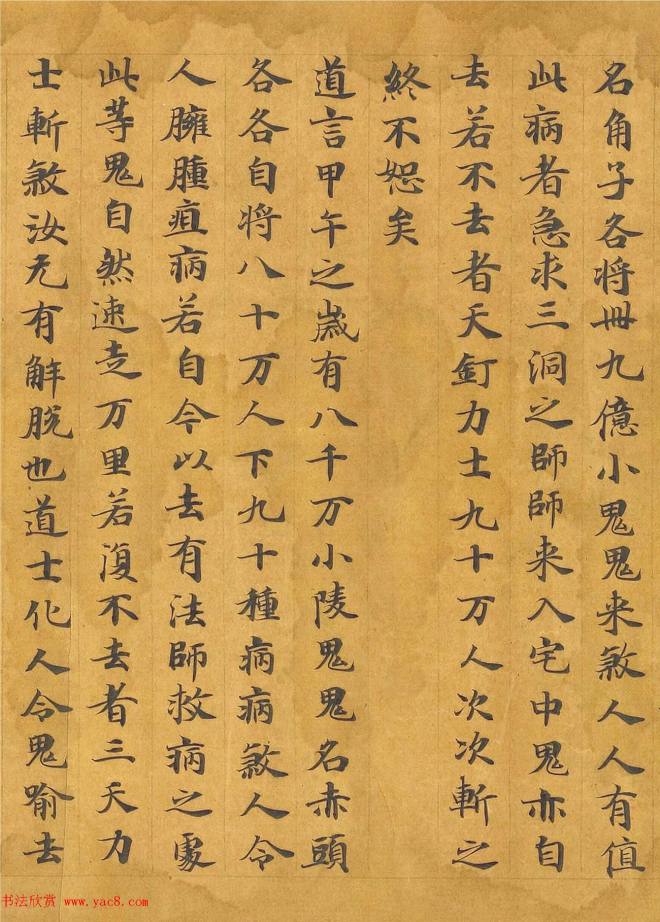 名角子各将卌九億小鬼鬼来煞人人有值
此病者急求三洞之師師来入宅中鬼亦自
去若不去者天釘力士九十万人次次斬之
終不恕矣
道言甲午之歳有八千万小陵鬼鬼名赤頭
各各自将八十万人下九十種病病煞人令
人臃腫疽病若自今以去有法師救病之處
此等鬼自然速走万里若復不去者三天力
士斬煞汝无有解脱也道士化人令鬼喻去
书法欣赏 www.yac8.com